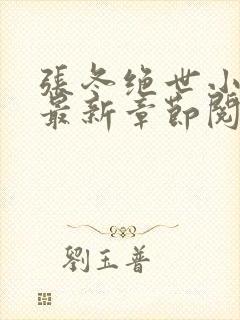 張冬绝世小
最新章節閱
劉玉普